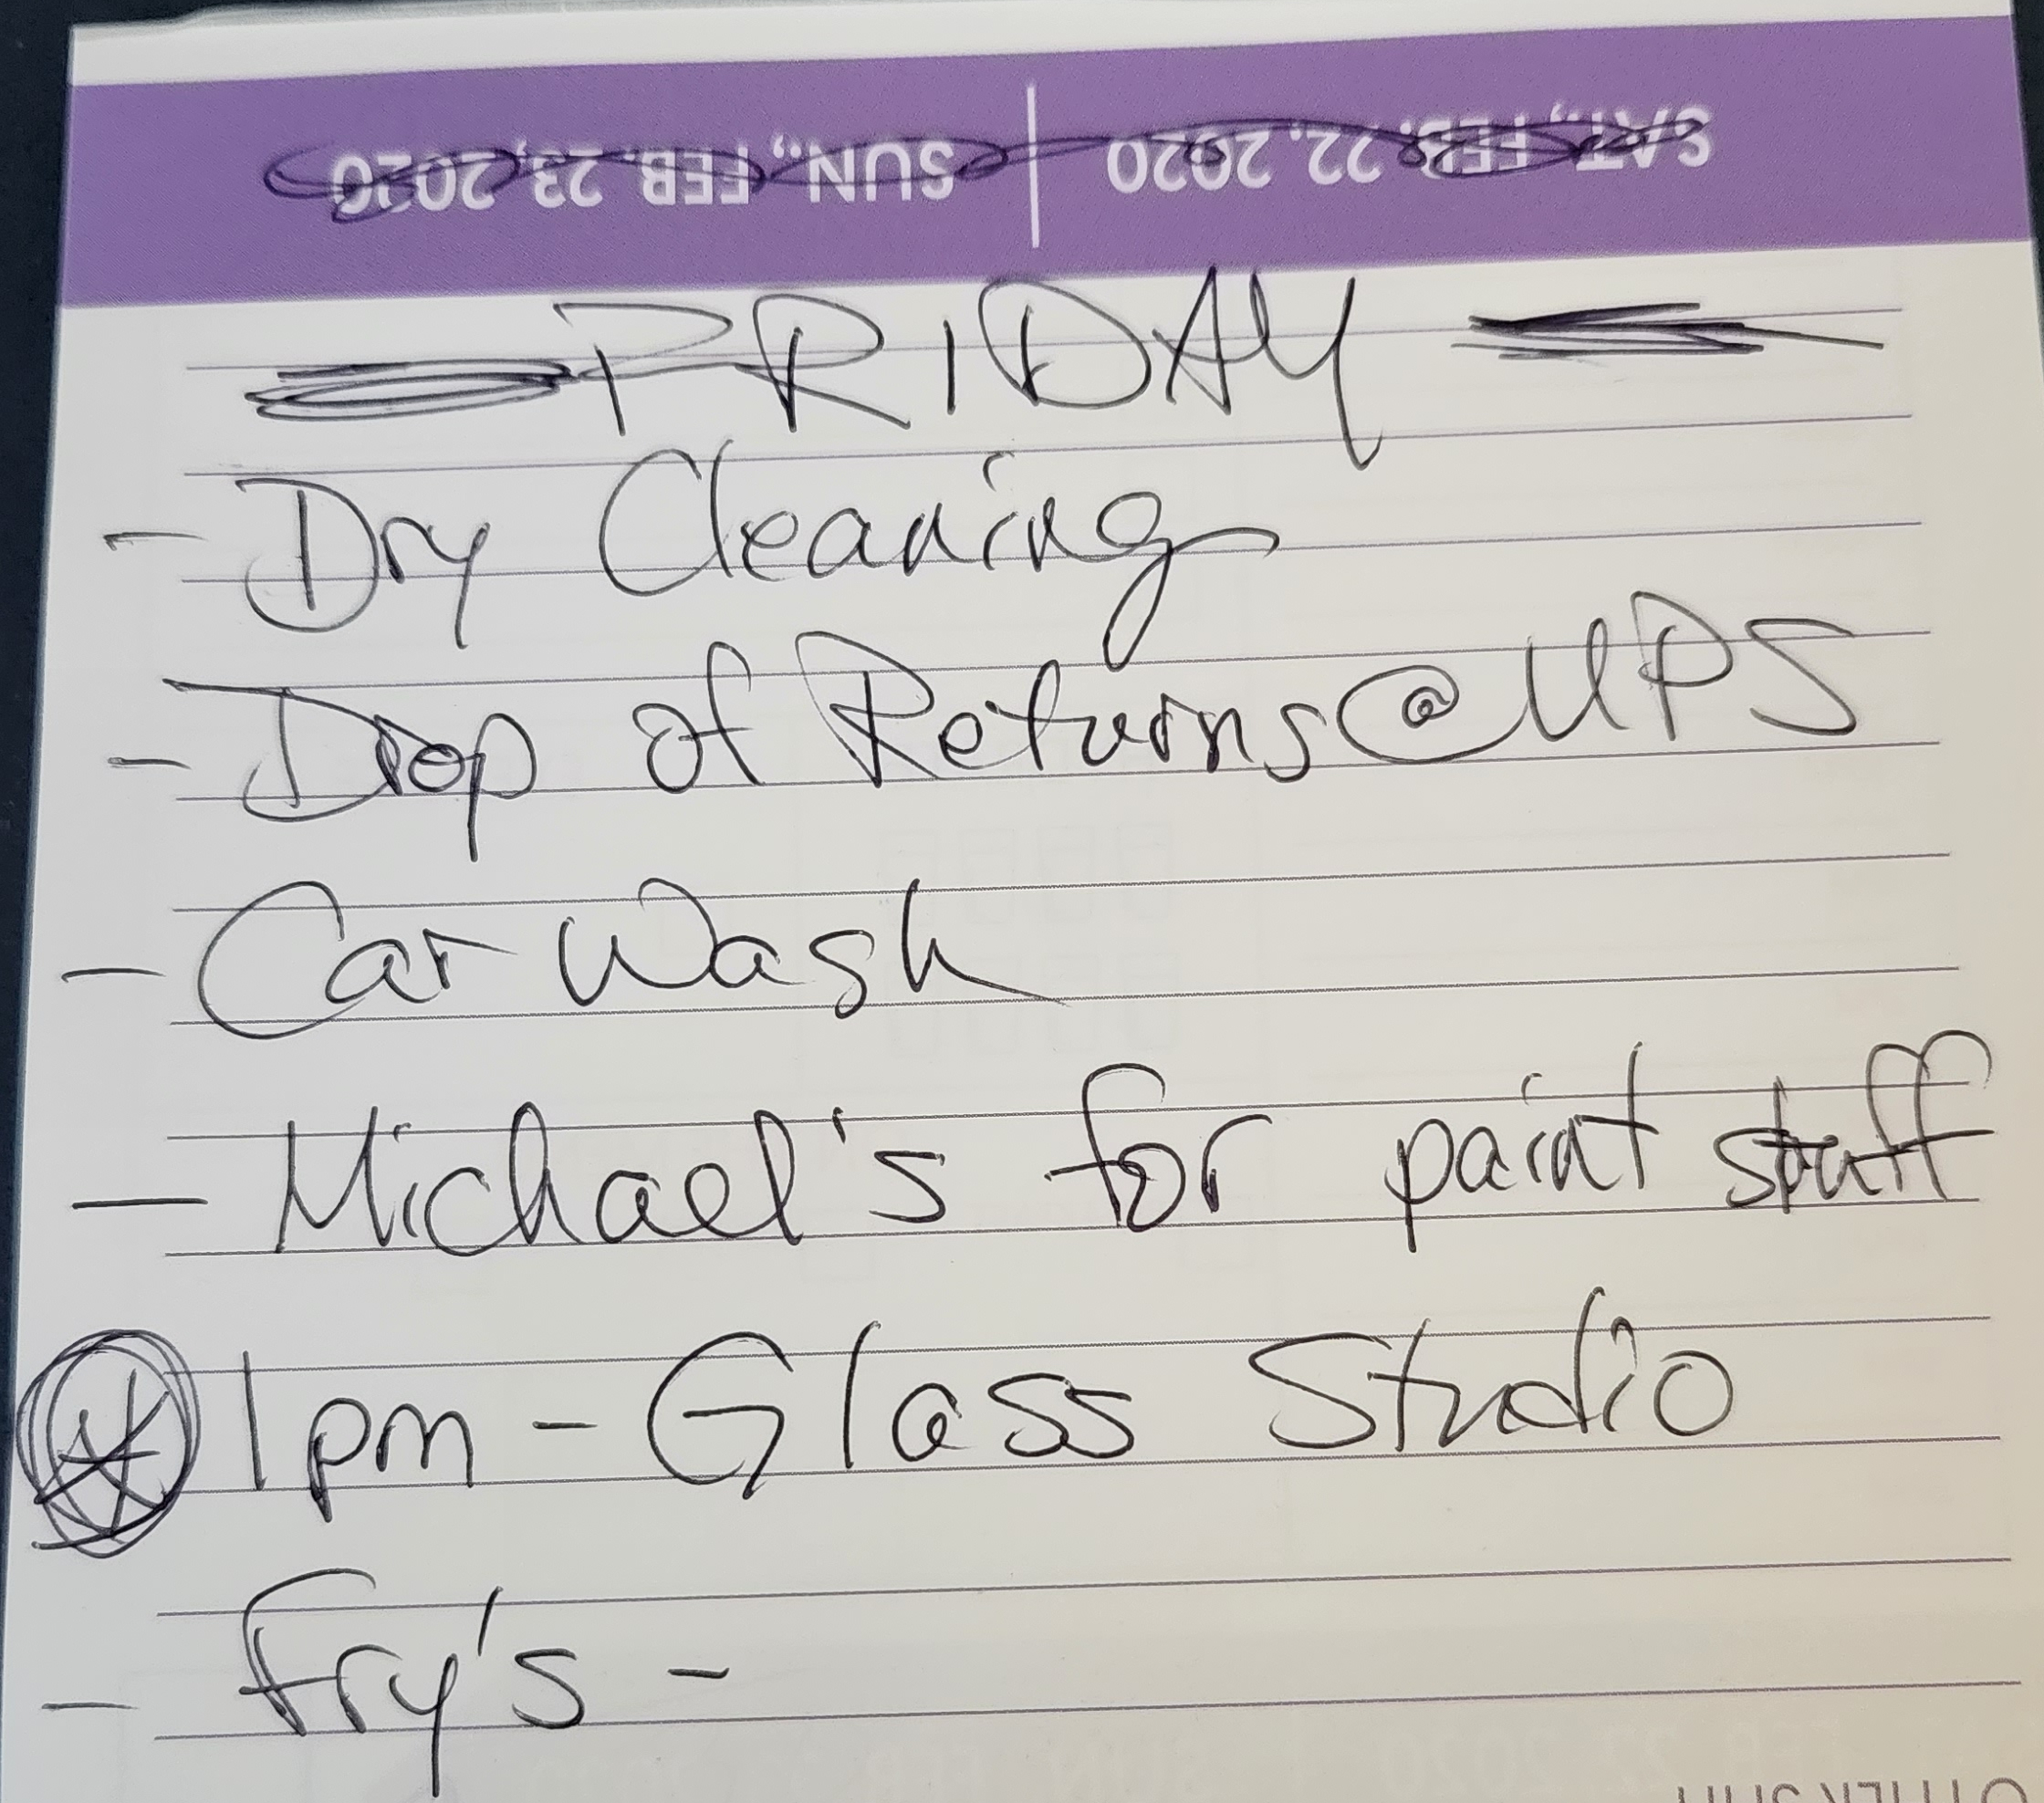 SAT., FEB. 22, 2020 | SUN., FEB. 23, 2020
FRIDAY
- Dry Cleaning
- Drop of Returns @ UPS
- Car Wash
- Michael's for paint stuff
1pm - Glass Studio
- Fry's -